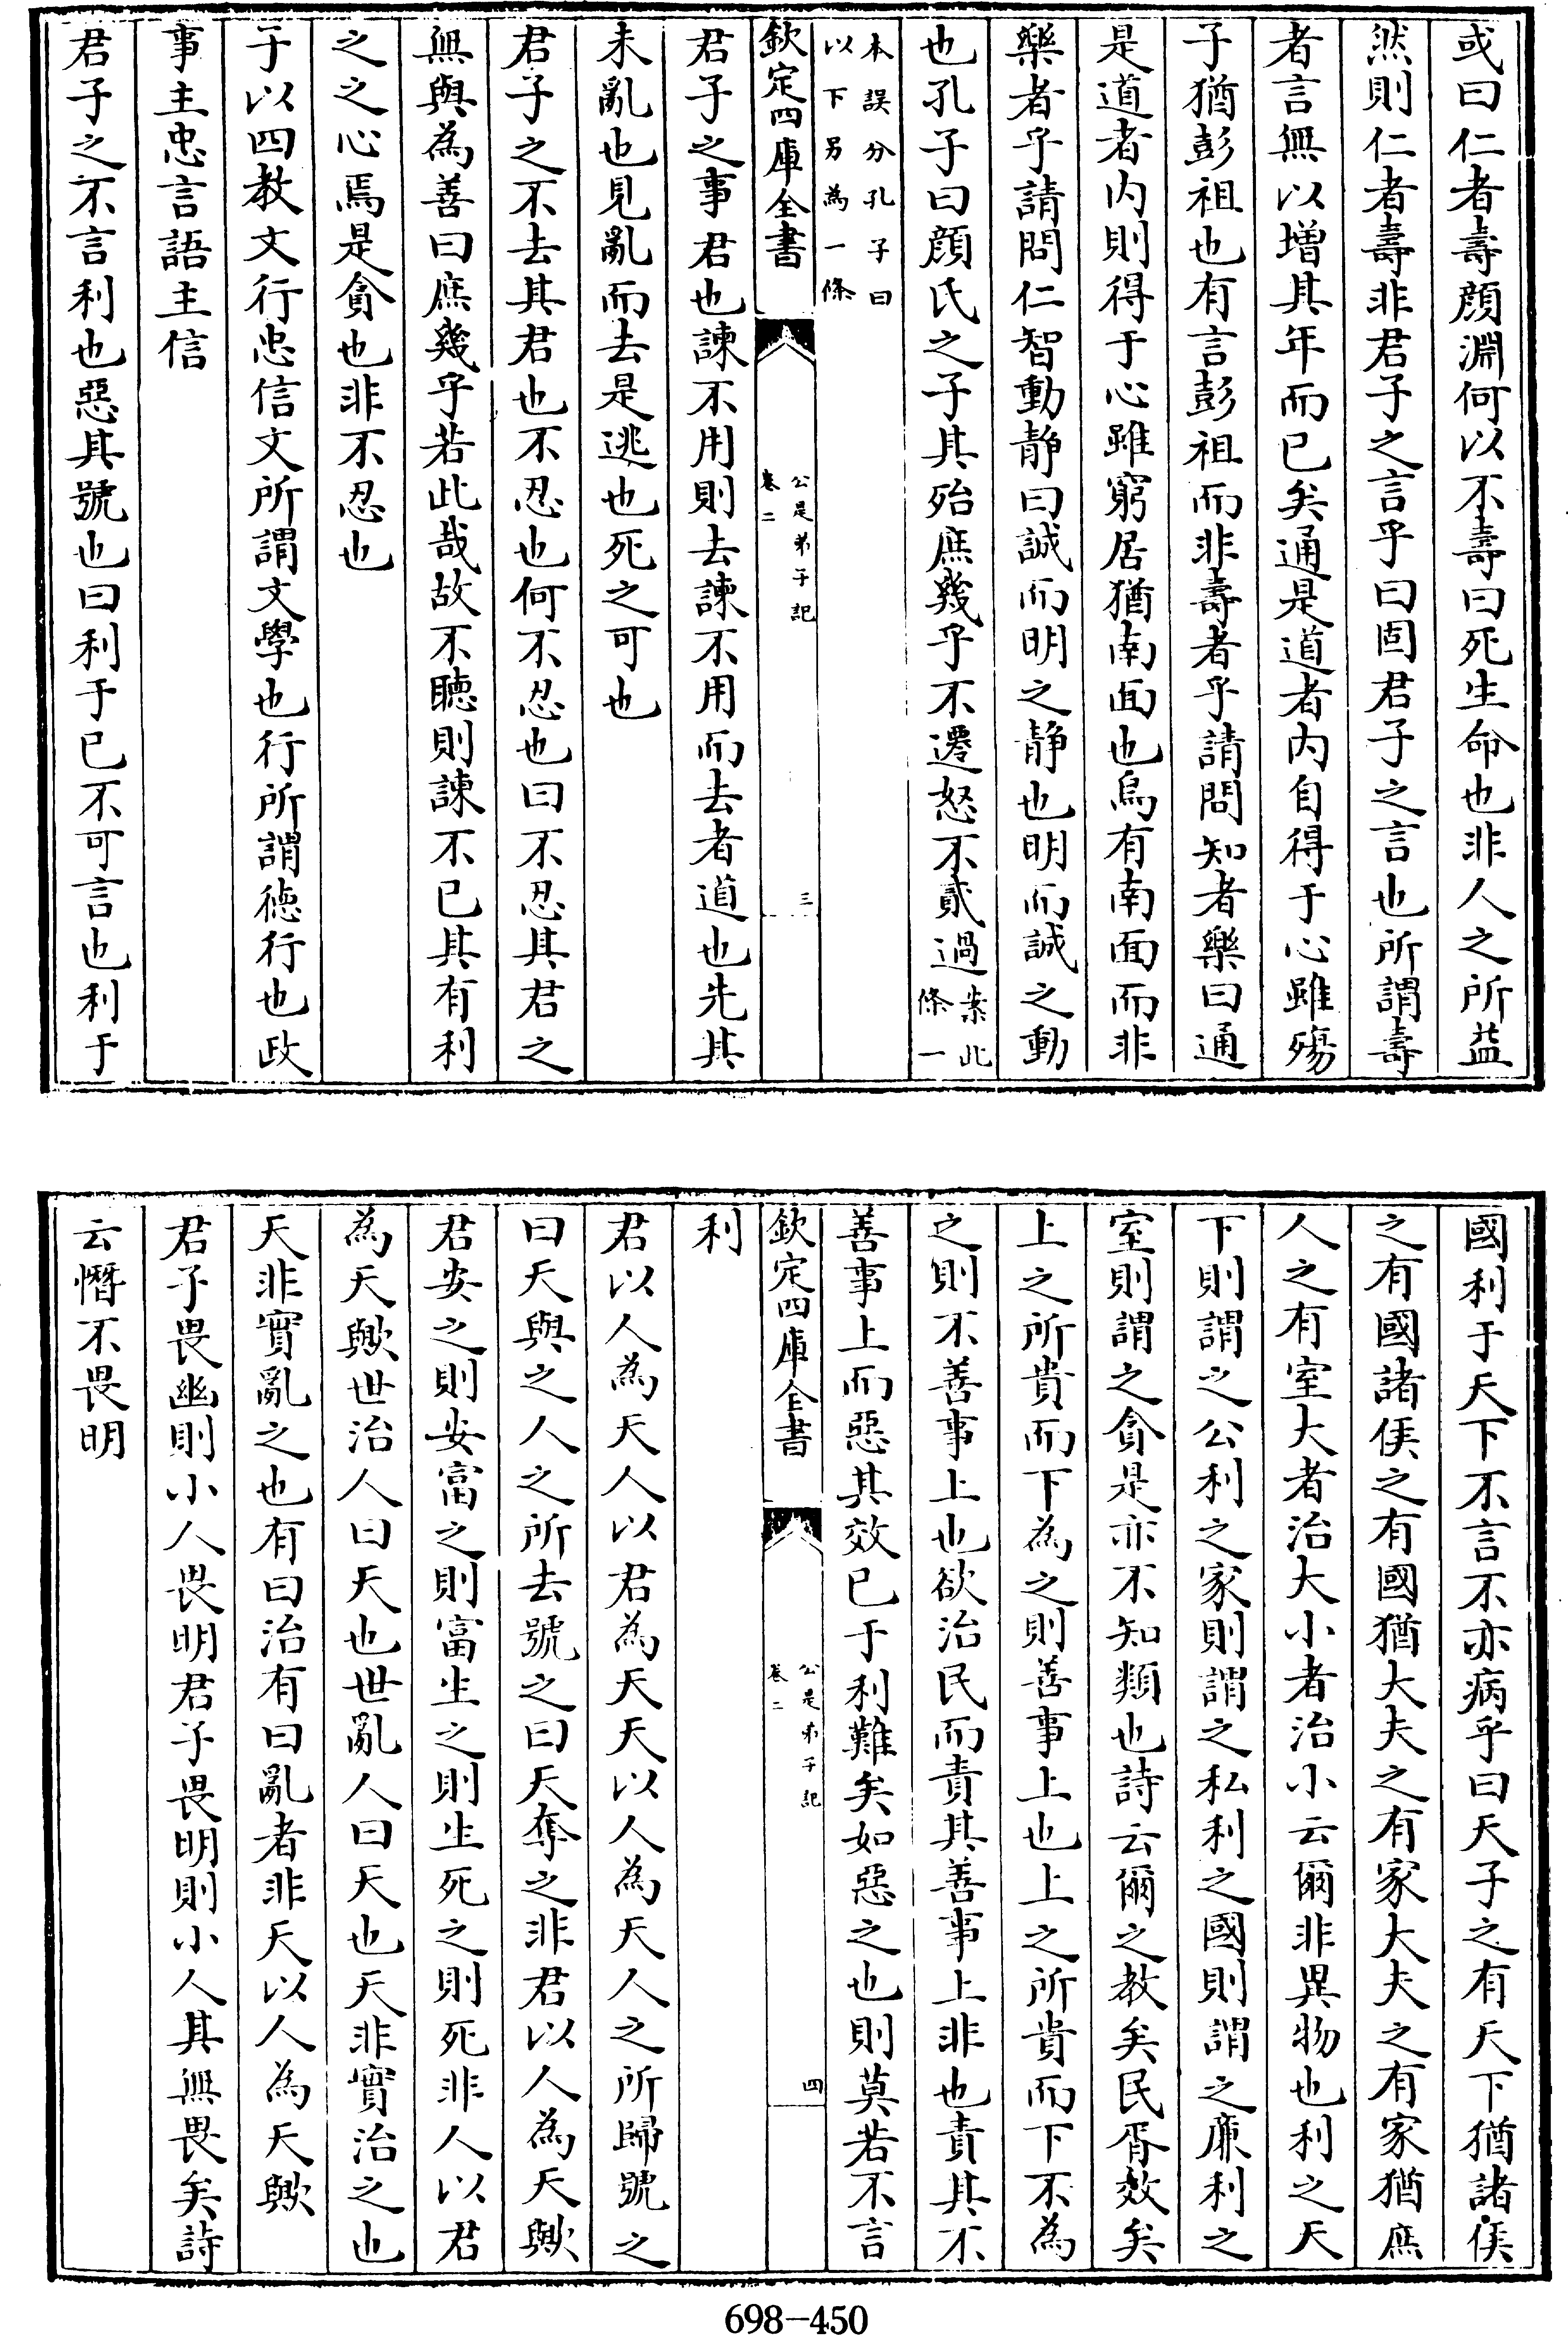 或曰仁者壽顔淵何以不壽曰死生命也非人之所益
然則仁者壽非君子之言乎曰固君子之言也所謂壽
者言無以增其年而已矣通是道者内自得于心雖殤
子猶彭祖也有言彭祖而非壽者乎請問知者樂曰通
是道者内則得于心雖窮居猶南面也烏有南面而非
樂者乎請問仁智動静曰誠而明之静也明而誠之動
也孔子曰顔氏之子其殆庶幾乎不遷怒不貳過案此條一
本誤分孔子曰以下另為一條
欽定四庫全書
公是弟子記
卷二
三
君子之事君也諫不用則去諫不用而去者道也先其
未亂也見亂而去是逃也死之可也
君子之不去其君也不忍也何不忍也曰不忍其君之
無與為善曰庶幾乎若此哉故不聽則諫不已其有利
之之心焉是貪也非不忍也
子以四教文行忠信文所謂文學也行所謂德行也政
事主忠言語主信
君子之不言利也惡其號也曰利于已不可言也利于
國利于天下不言不亦病乎曰天子之有天下猶諸侯
之有國諸侯之有國猶大夫之有家大夫之有家猶庶
人之有室大者治大小者治小云爾非異物也利之天
下則謂之公利之家則謂之私利之國則謂之廉利之
室則謂之貪是亦不知類也詩云爾之教矣民胥效矣
上之所貴而下為之則善事上也上之所貴而下不為
之則不善事上也欲治民而責其善事上非也責其不
善事上而惡其效已于利難矣如惡之也則莫若不言
欽定四庫全書
公是弟子記
卷二
四
利
君以人為天人以君為天天以人為天人之所歸號之
曰天與之人之所去號之曰天奪之非君以人為天歟
君安之則安富之則富生之則生死之則死非人以君
為天歟世治人曰天也世亂人曰天也天非實治之也
天非實亂之也有曰治有曰亂者非天以人為天歟
君子畏幽則小人畏明君子畏明則小人其無畏矣詩
云憯不畏明
698-450